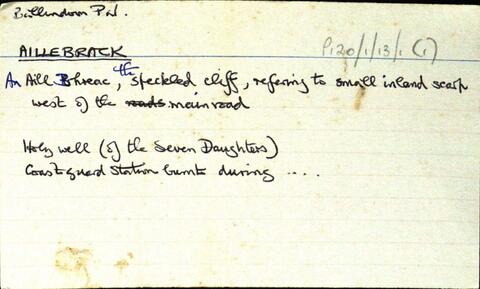 Ballindoon Par.
AILLEBRACK P120/1/13/1 (1)
An Aill Bhreac, the speckled cliff, referring to small inland scarp
west of the roads main road
Holy well (of the Seven Daughters)
Coastguard Station burnt during ....